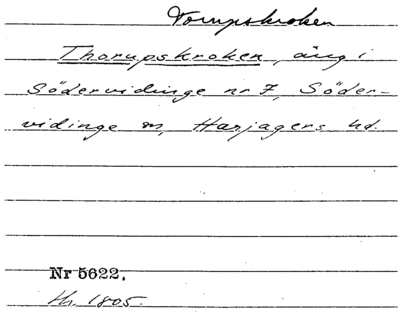 Torupskroken
Thorupskroken, äng i
Södervidinge nr 7, Söder-
vidinge sn, Harjagers hd.
Nr 5622.
Hh. 1805.